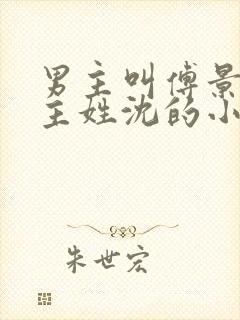 男主叫傅景
主姓沈的小
朱世宏